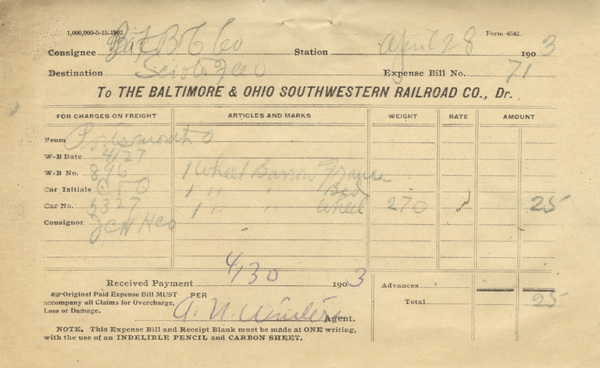 1,000,000-5-15-1902
Form 4542.
Consignee B & F B T Co Station April 28 1903
Destination Expense Bill No. 71
To THE BALTIMORE & OHIO SOUTHWESTERN RAILROAD CO., Dr.
FOR CHARGES ON FREIGHT ARTICLES AND MARKS WEIGHT RATE AMOUNT
From Portsmouth O
W-B Date 4/27
W-B No. 896 1 Wheel Barrow Frame
Car Initials C & O 1 " " Bed
Car No. 5327 1 " " Wheel 270 25
Consignor
Received Payment 4/30 1903 Advances
Original Paid Expense Bill MUST PER
accompany all Claims for Overcharge, A. N. Winters
Loss or Damage. Agent. Total 25
NOTE. This Expense Bill and Receipt Blank must be made at ONE writing,
with the use of an INDELIBLE PENCIL and CARBON SHEET.